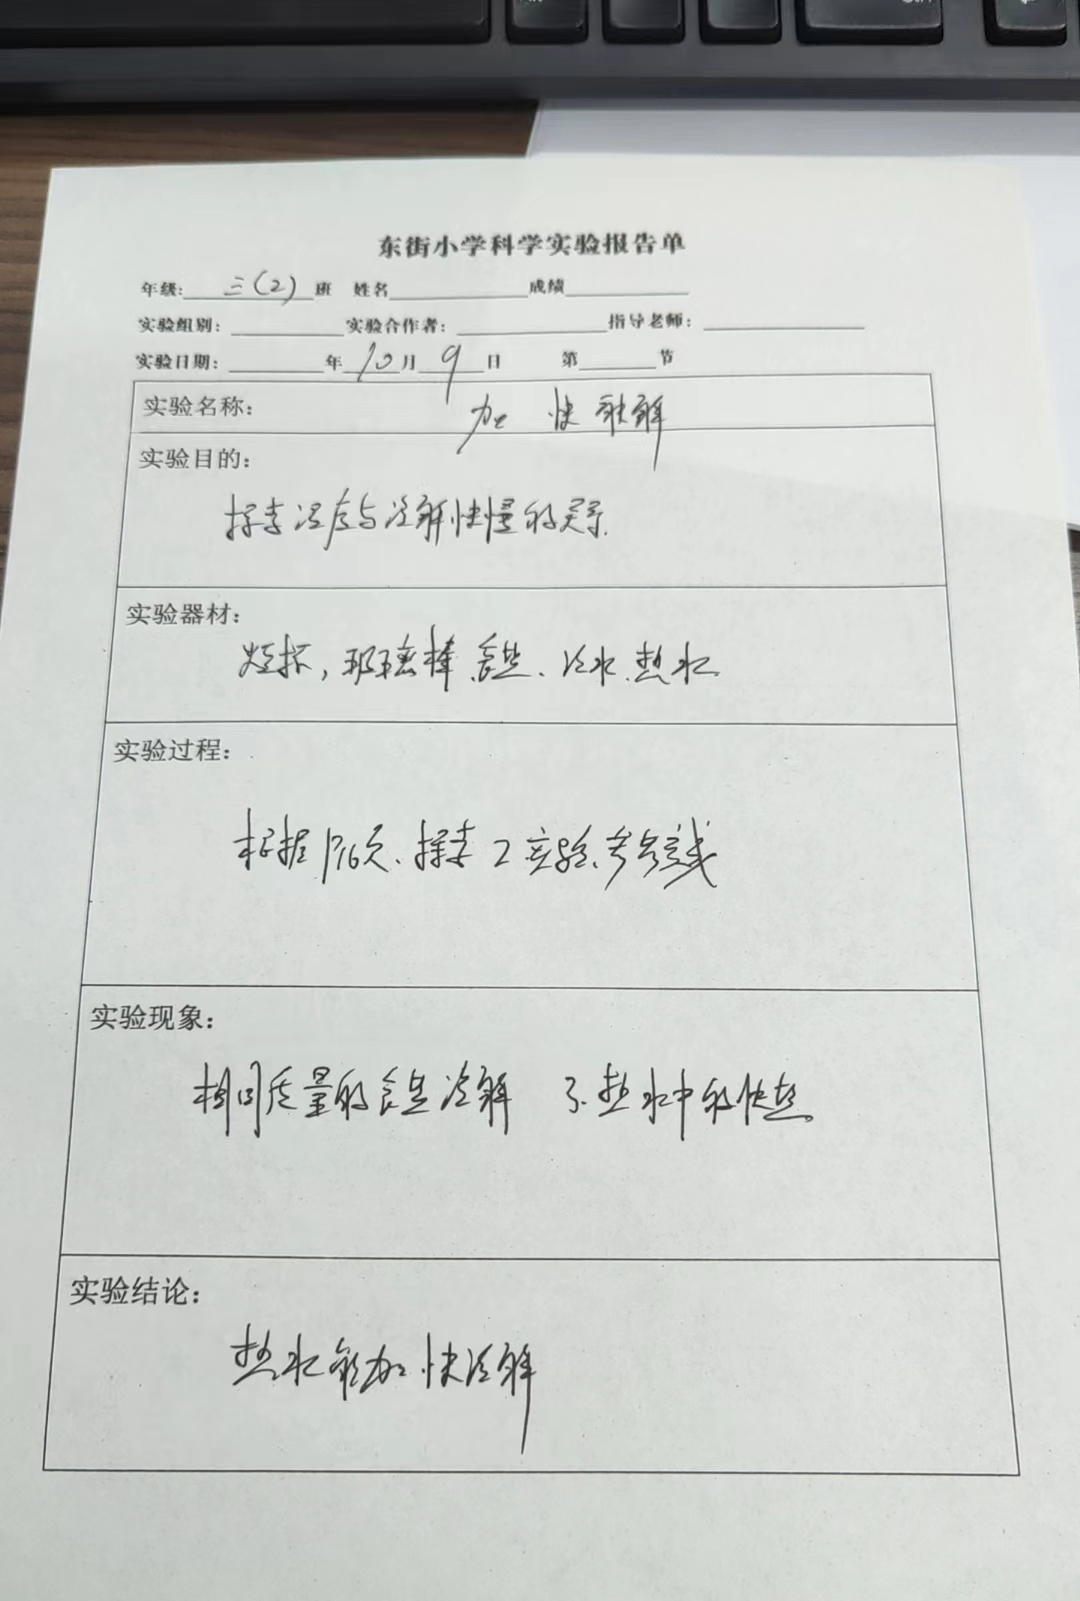 东街小学科学实验报告单
年级: 三(2) 班 姓名 成绩
实验组别: 实验合作者: 指导老师:
实验日期: 年 10 月 9 日 第 节
实验名称: 加快溶解
实验目的:
探索温度与溶解快慢的关系
实验器材:
烧杯,玻璃棒、食盐、冷水、热水
实验过程:
根据P16页、探索2实验、参考完成
实验现象:
相同质量的食盐溶解 热水中的快些。
实验结论:
热水能加快溶解